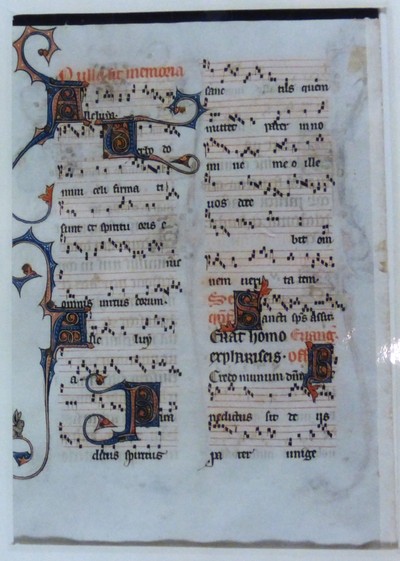 sit memoria
A lleluya
erbo do
mini celi firma ti
sunt et spiritu oris e
ius
omnis virtus eorum
A lle luy
a
clitus spiritus
sanc tus quem
mittet pater in no
mi ne me o ille
vos doce
bit om
nem veri ta tem
Se
Sancti sps assit
Erat homo
ex phariseis. off
Credo in unum dm
B
nedictus sit de us
pa ter unige